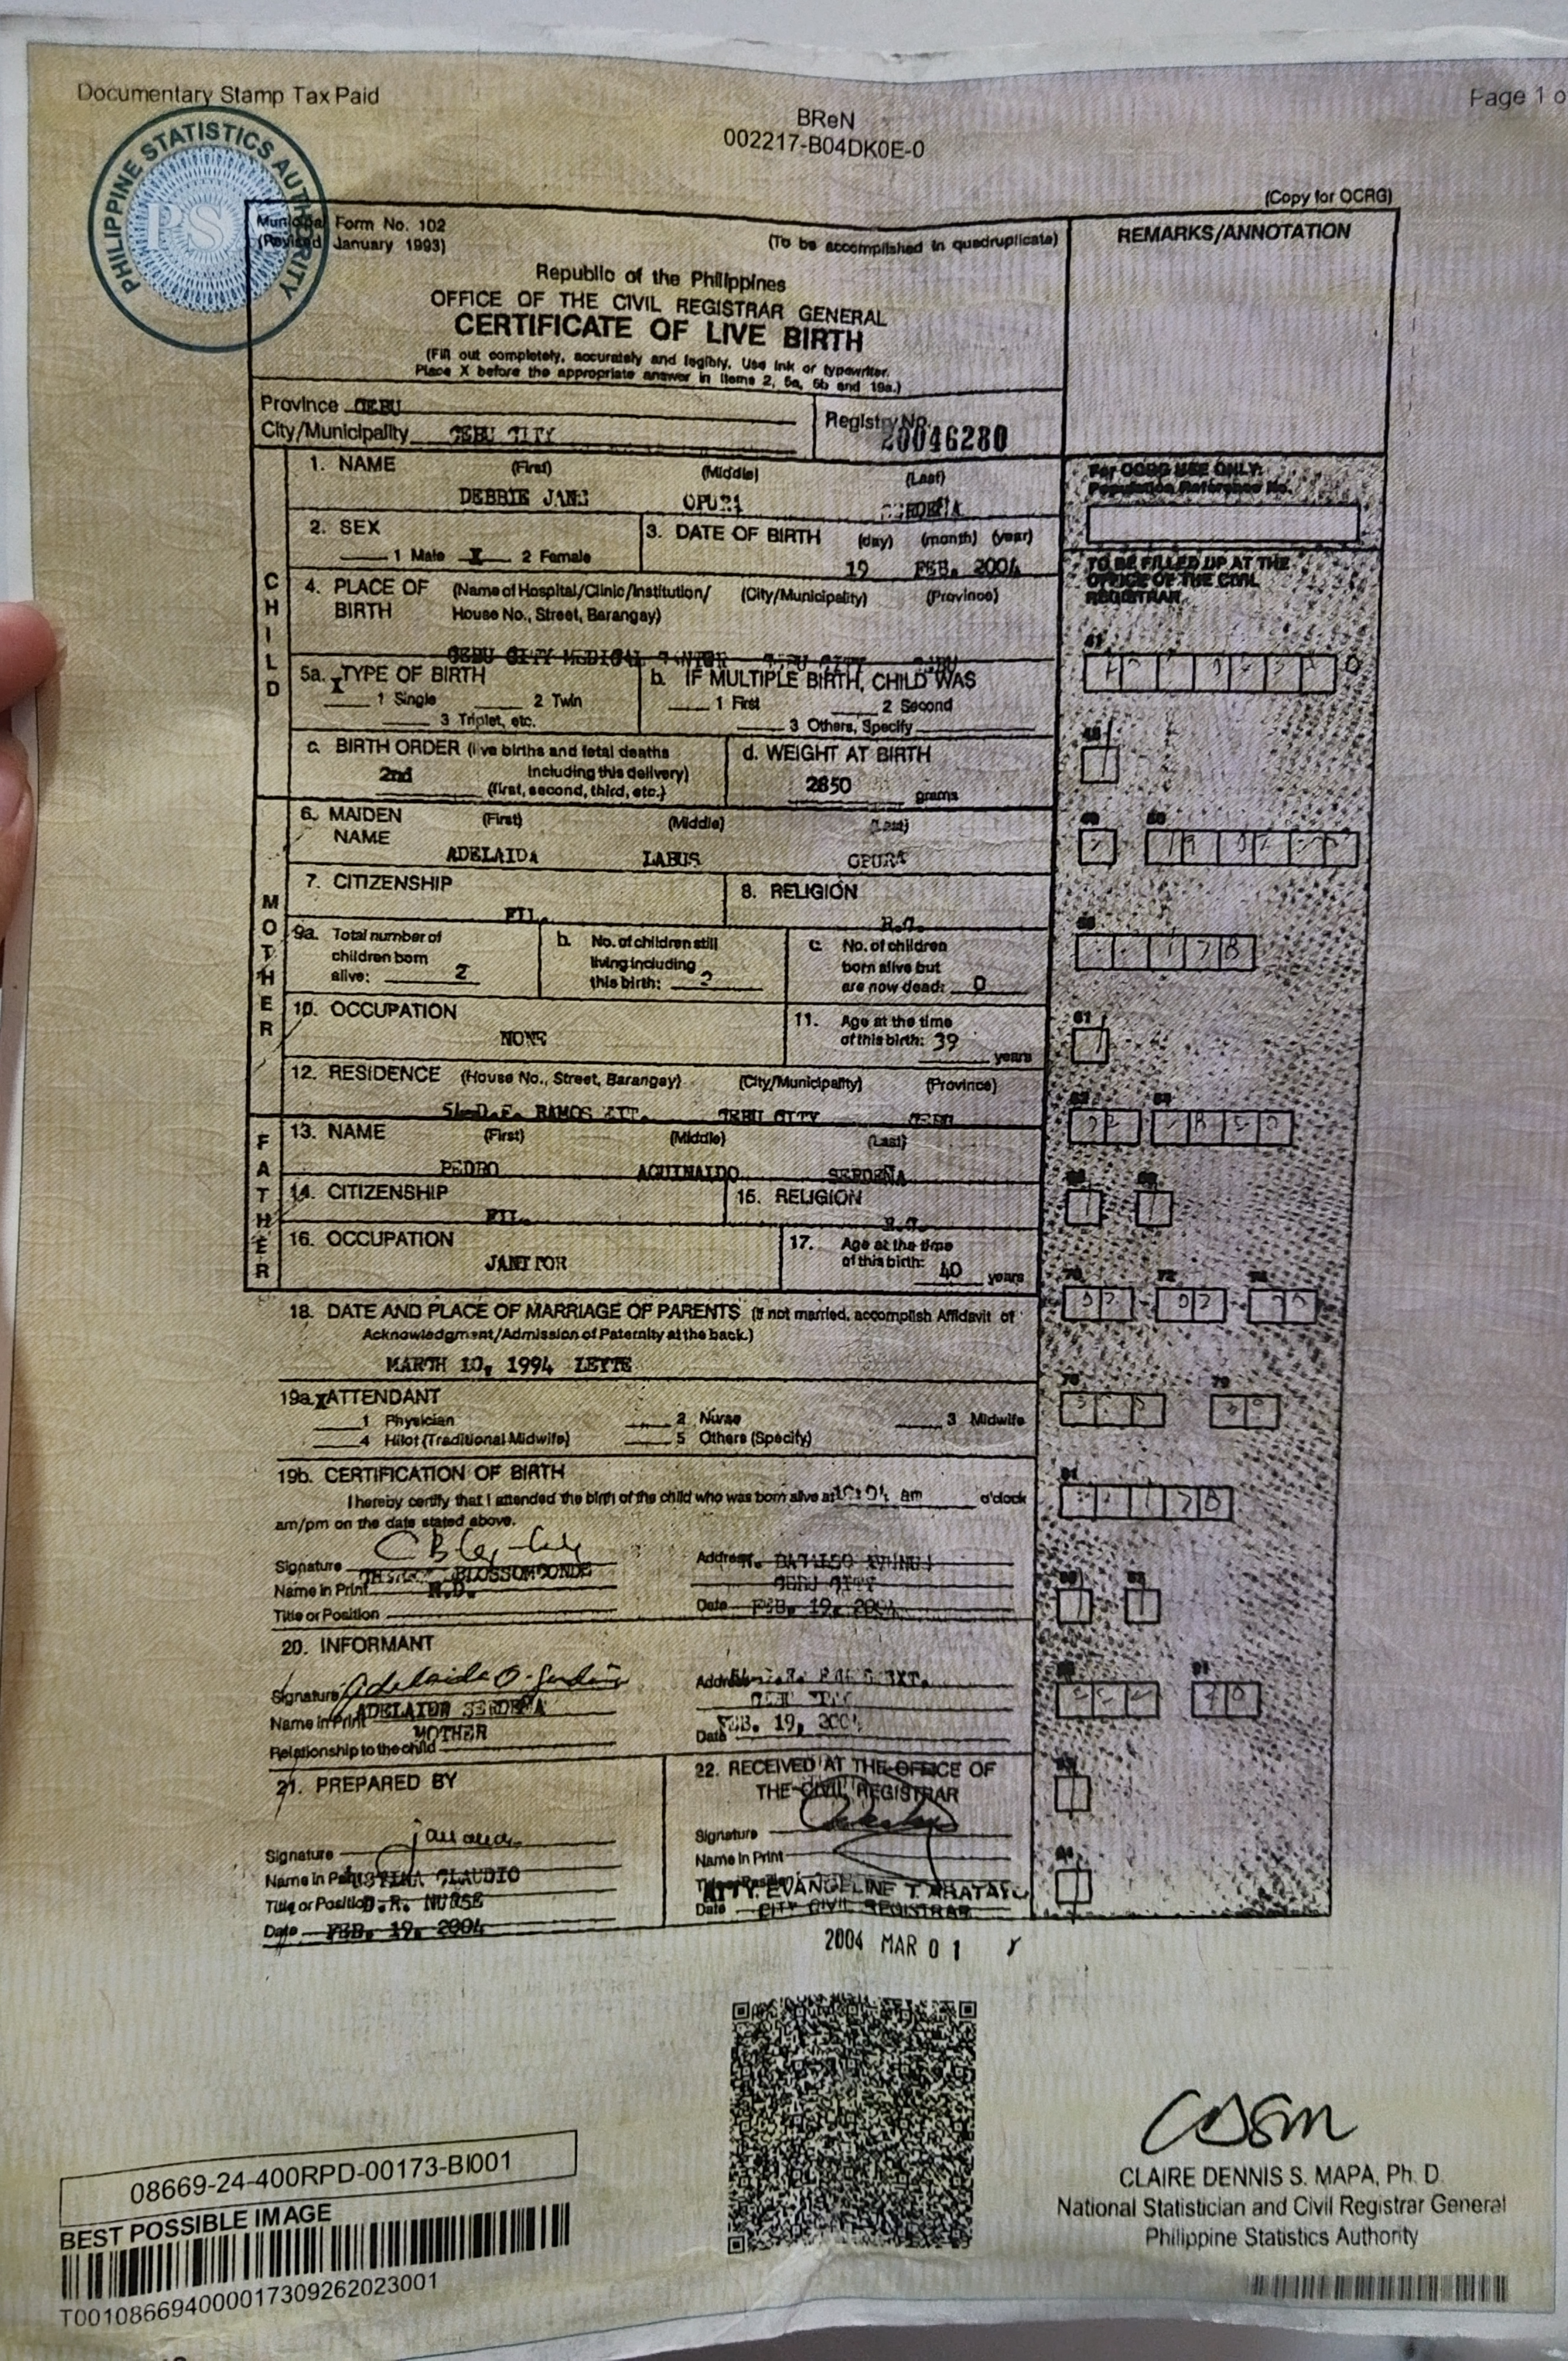 Documentary Stamp Tax Paid
Page 1 o
BReN
002217-B04DK0E-0
PHILIPPINE STATISTICS AUTHORITY
PSA
(Copy for OCRG)
Municipal Form No. 102
(Revised January 1993)
(To be accomplished in quadruplicate)
REMARKS/ANNOTATION
Republic of the Philippines
OFFICE OF THE CIVIL REGISTRAR GENERAL
CERTIFICATE OF LIVE BIRTH
(Fill out completely, accurately and legibly. Use ink or typewriter.
Place X before the appropriate answer in items 2, 5a, 5b and 19a.)
Province CEBU
City/Municipality CEBU CITY
Registry No. 20046280
For OCRG USE ONLY:
Population Reference No.
TO BE FILLED UP AT THE
OFFICE OF THE CIVIL
REGISTRAR
CHILD
1. NAME (First) (Middle) (Last)
DEBBIE JANE OPURA SERDEÑA
2. SEX
1 Male X 2 Female
3. DATE OF BIRTH (day) (month) (year)
19 FEB. 2004
4. PLACE OF BIRTH (Name of Hospital/Clinic/Institution/ (City/Municipality) (Province)
House No., Street, Barangay)
CEBU CITY MEDICAL CENTER CEBU CITY CEBU
5a. TYPE OF BIRTH
X 1 Single 2 Twin
3 Triplet, etc.
b. IF MULTIPLE BIRTH, CHILD WAS
1 First 2 Second
3 Others, Specify
c. BIRTH ORDER (live births and fetal deaths
2nd including this delivery)
(first, second, third, etc.)
d. WEIGHT AT BIRTH
2850 grams
MOTHER
6. MAIDEN NAME (First) (Middle) (Last)
ADELAIDA LABUS OPURA
7. CITIZENSHIP
FIL.
8. RELIGION
R.C.
9a. Total number of
children born
alive: 2
b. No. of children still
living including
this birth: 2
c. No. of children
born alive but
are now dead: 0
10. OCCUPATION
NONE
11. Age at the time
of this birth: 39 years
12. RESIDENCE (House No., Street, Barangay) (City/Municipality) (Province)
RAMOS EXT. CEBU CITY CEBU
FATHER
13. NAME (First) (Middle) (Last)
PEDRO AGUINALDO SERDEÑA
14. CITIZENSHIP
FIL.
15. RELIGION
R.C.
16. OCCUPATION
JANITOR
17. Age at the time
of this birth: 40 years
18. DATE AND PLACE OF MARRIAGE OF PARENTS (If not married, accomplish Affidavit of
Acknowledgment/Admission of Paternity at the back.)
MARCH 10, 1994 LEYTE
19a. ATTENDANT
X 1 Physician 2 Nurse 3 Midwife
4 Hilot (Traditional Midwife) 5 Others (Specify)
19b. CERTIFICATION OF BIRTH
I hereby certify that I attended the birth of the child who was born alive at am o'clock
am/pm on the date stated above.
Signature
Name in Print BLOSSOM CONDE
M.D.
Title or Position
Address
CEBU CITY
Date FEB. 19, 2004
20. INFORMANT
Signature
Name in Print ADELAIDA SERDEÑA
Relationship to the child MOTHER
Address
CEBU CITY
Date FEB. 19, 2004
21. PREPARED BY
Signature
Name in Print CLAUDIO
Title or Position D.R. NURSE
Date FEB. 19, 2004
22. RECEIVED AT THE OFFICE OF
THE CIVIL REGISTRAR
Signature
Name in Print
Title or Position
ATTY. EVANGELINE T. ABATAYO
Date CITY CIVIL REGISTRAR
2004 MAR 01
08669-24-400RPD-00173-BI001
BEST POSSIBLE IMAGE
T001086694000017309262023001
CLAIRE DENNIS S. MAPA, Ph. D.
National Statistician and Civil Registrar General
Philippine Statistics Authority